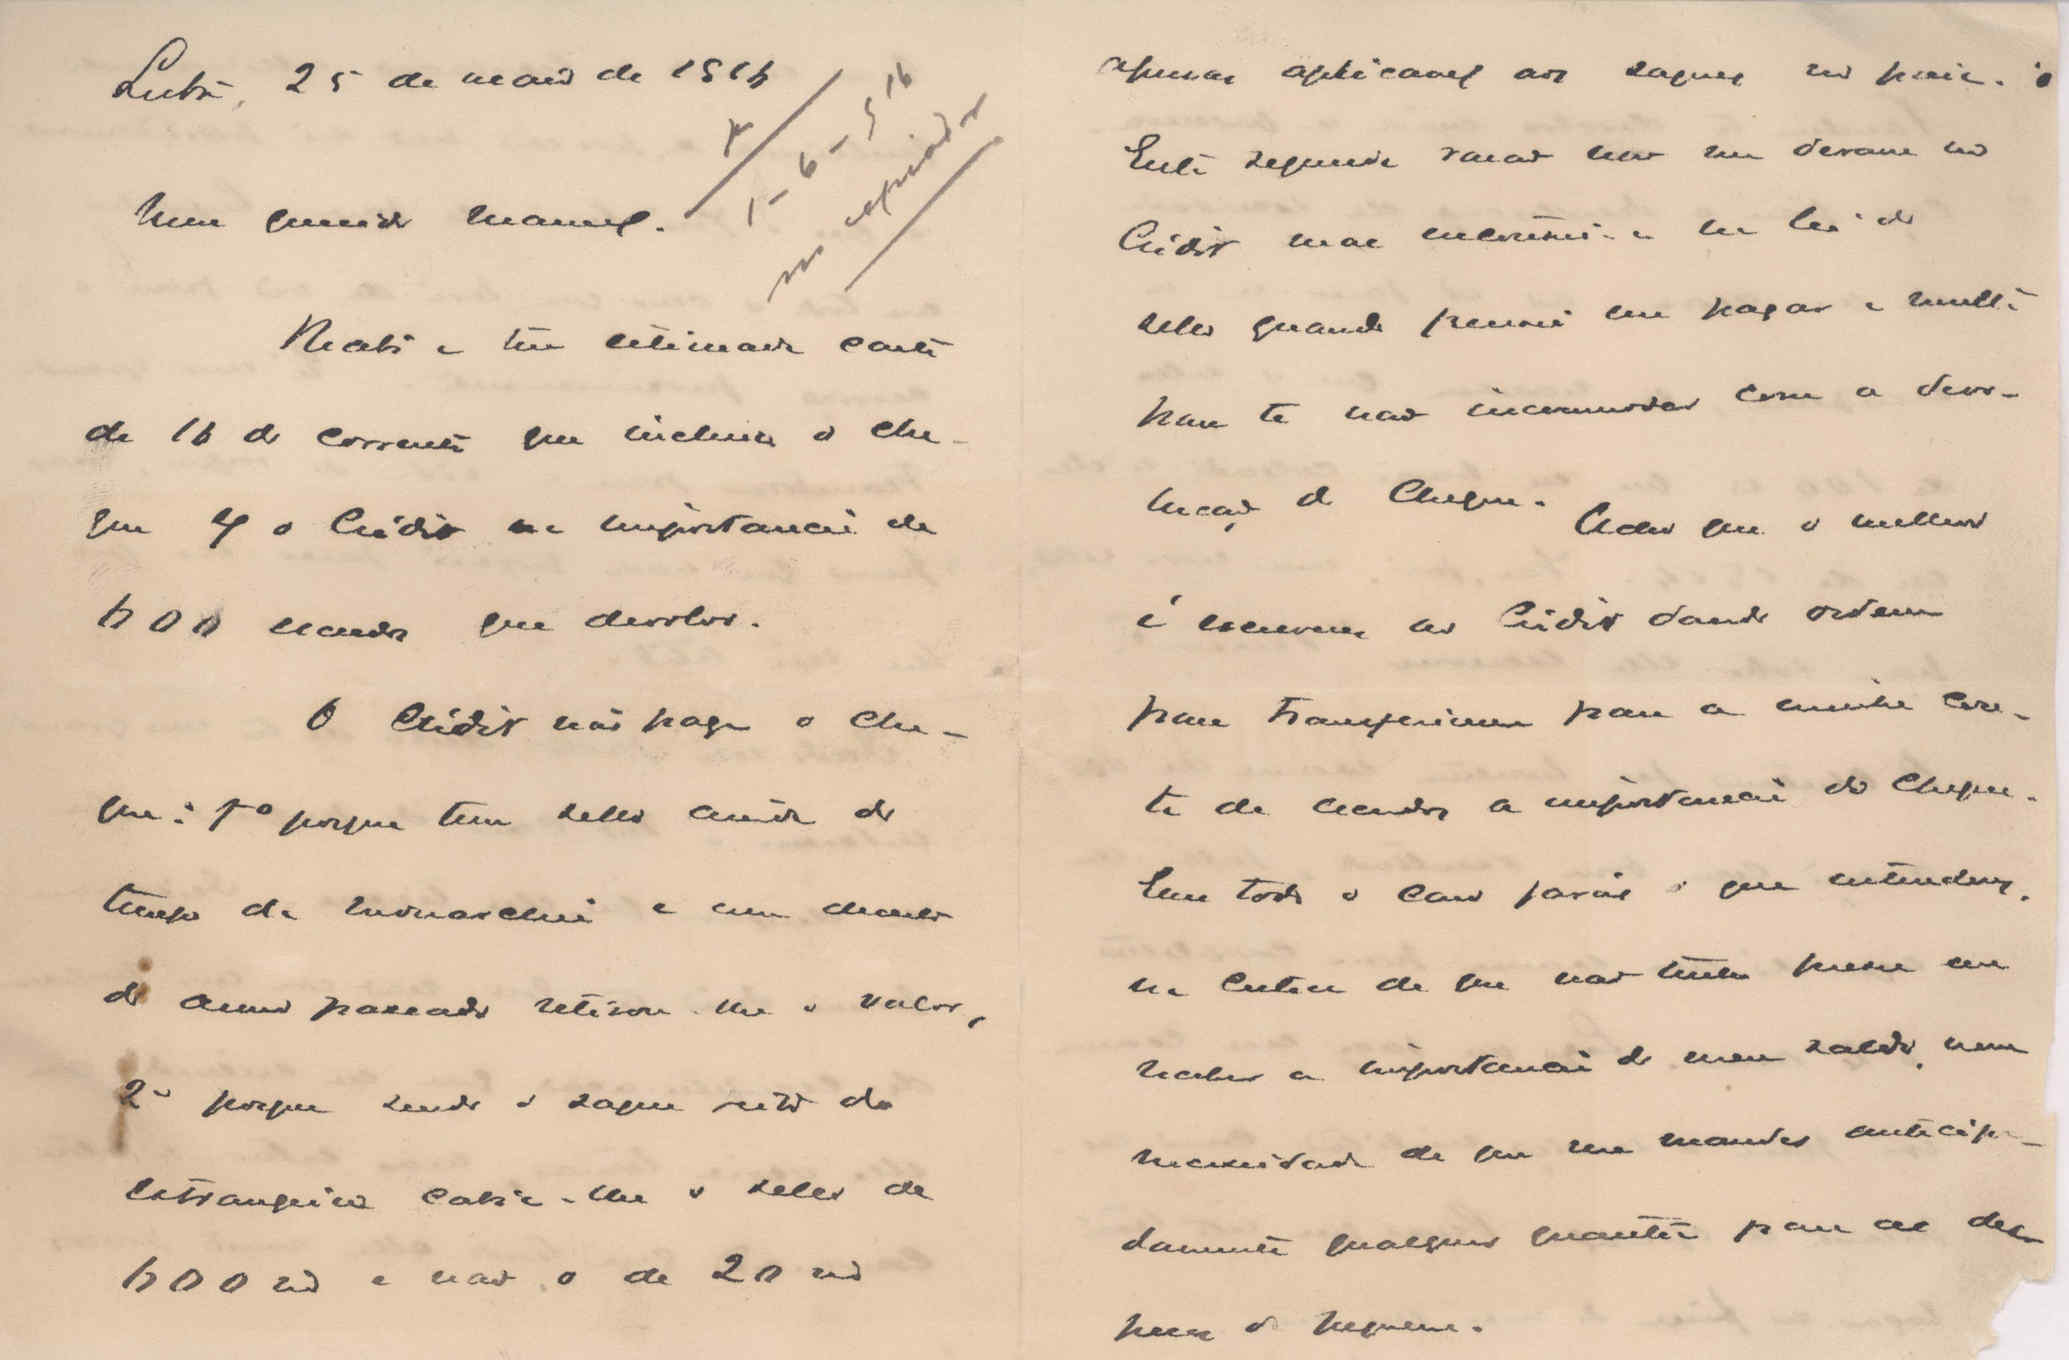 Lxbª, 25 de maio de 1916
R
1-6-916
Meu querido Manuel.
Recebi a tua estimada carta
de 16 do corrente que incluia o che-
que s/ o Crédito na importancia de
600 escudos que devolvo.
O Crédito não paga o che-
que: 1º porque tem sello ainda do
tempo da monarchia e um decreto
do anno passado retirou-lhe o valor,
2º porque sendo o saque feito do
estrangeiro cabia-lhe o sello de
600 rs e não o de 20 rs
apenas aplicavel aos saques no paiz.
Esta segunda razão não me deram no
Crédito mas encontrei-a na lei do
sello quando pensei em pagar a multa
para te não incommodar com a devo-
lução do cheque. Acho que o melhor
é escreveres ao Crédito dando ordem
para transferirem para a minha con-
ta de escudos a importancia do cheque.
Em todo o caso farás o que entenderes,
na certeza de que não tenho pressa em
receber a importancia do meu saldo, nem
necessidade de que me mandes antecipa-
damente qualquer quantia para as des-
pezas do pequeno.